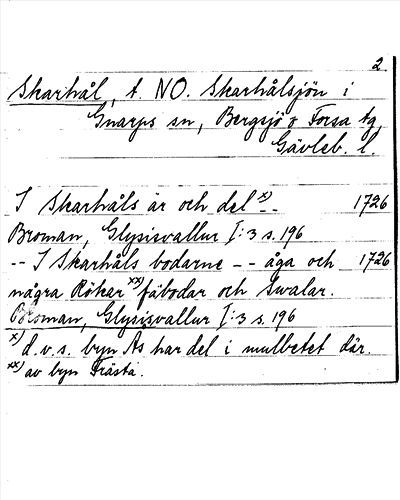 2.
Skarhål, t. NO. Skarhålsjön i
Gnarps sn, Bergsjö o Forsa tg,
Gävleb. l.
I Skarhåls är och del x) -- 1726
Broman, Glysisvallur I:3 s. 196
-- I Skarhåls bodarne -- åga och 1726
några Rökar xx) fäbodar och Swalar.
Broman, Glysisvallur I:3 s. 196
x) d.v.s. byn Ås har del i mulbetet där.
xx) av byn Frästa.